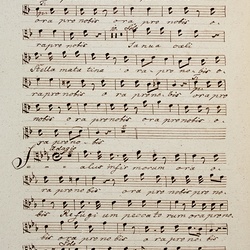 ora pro nobis ora pro nobis o.
rapro nobis Janua coeli
Stella matutina o _ ra _ pro no _ bis o
rapro nobis o ra pro no _ bis ora pro
nobis ora pro nobis ora pro nobis o.
ra pro nobis.
Adagio
Salus infirmorum ora o.
ra pro nobis ora pro nobis pro no.
bis Refugium peccatorum ora pro no.
bis ora pro nobis ora pro nobis